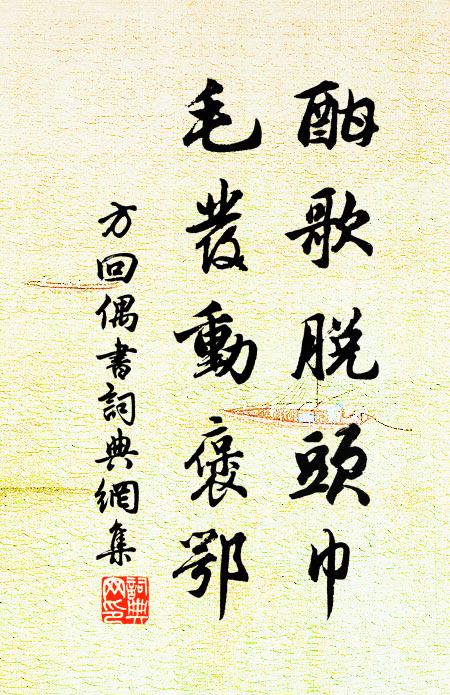 酣歌脱頭巾
毛發動褒鄂
方回偶書詞典網集
詞典網印